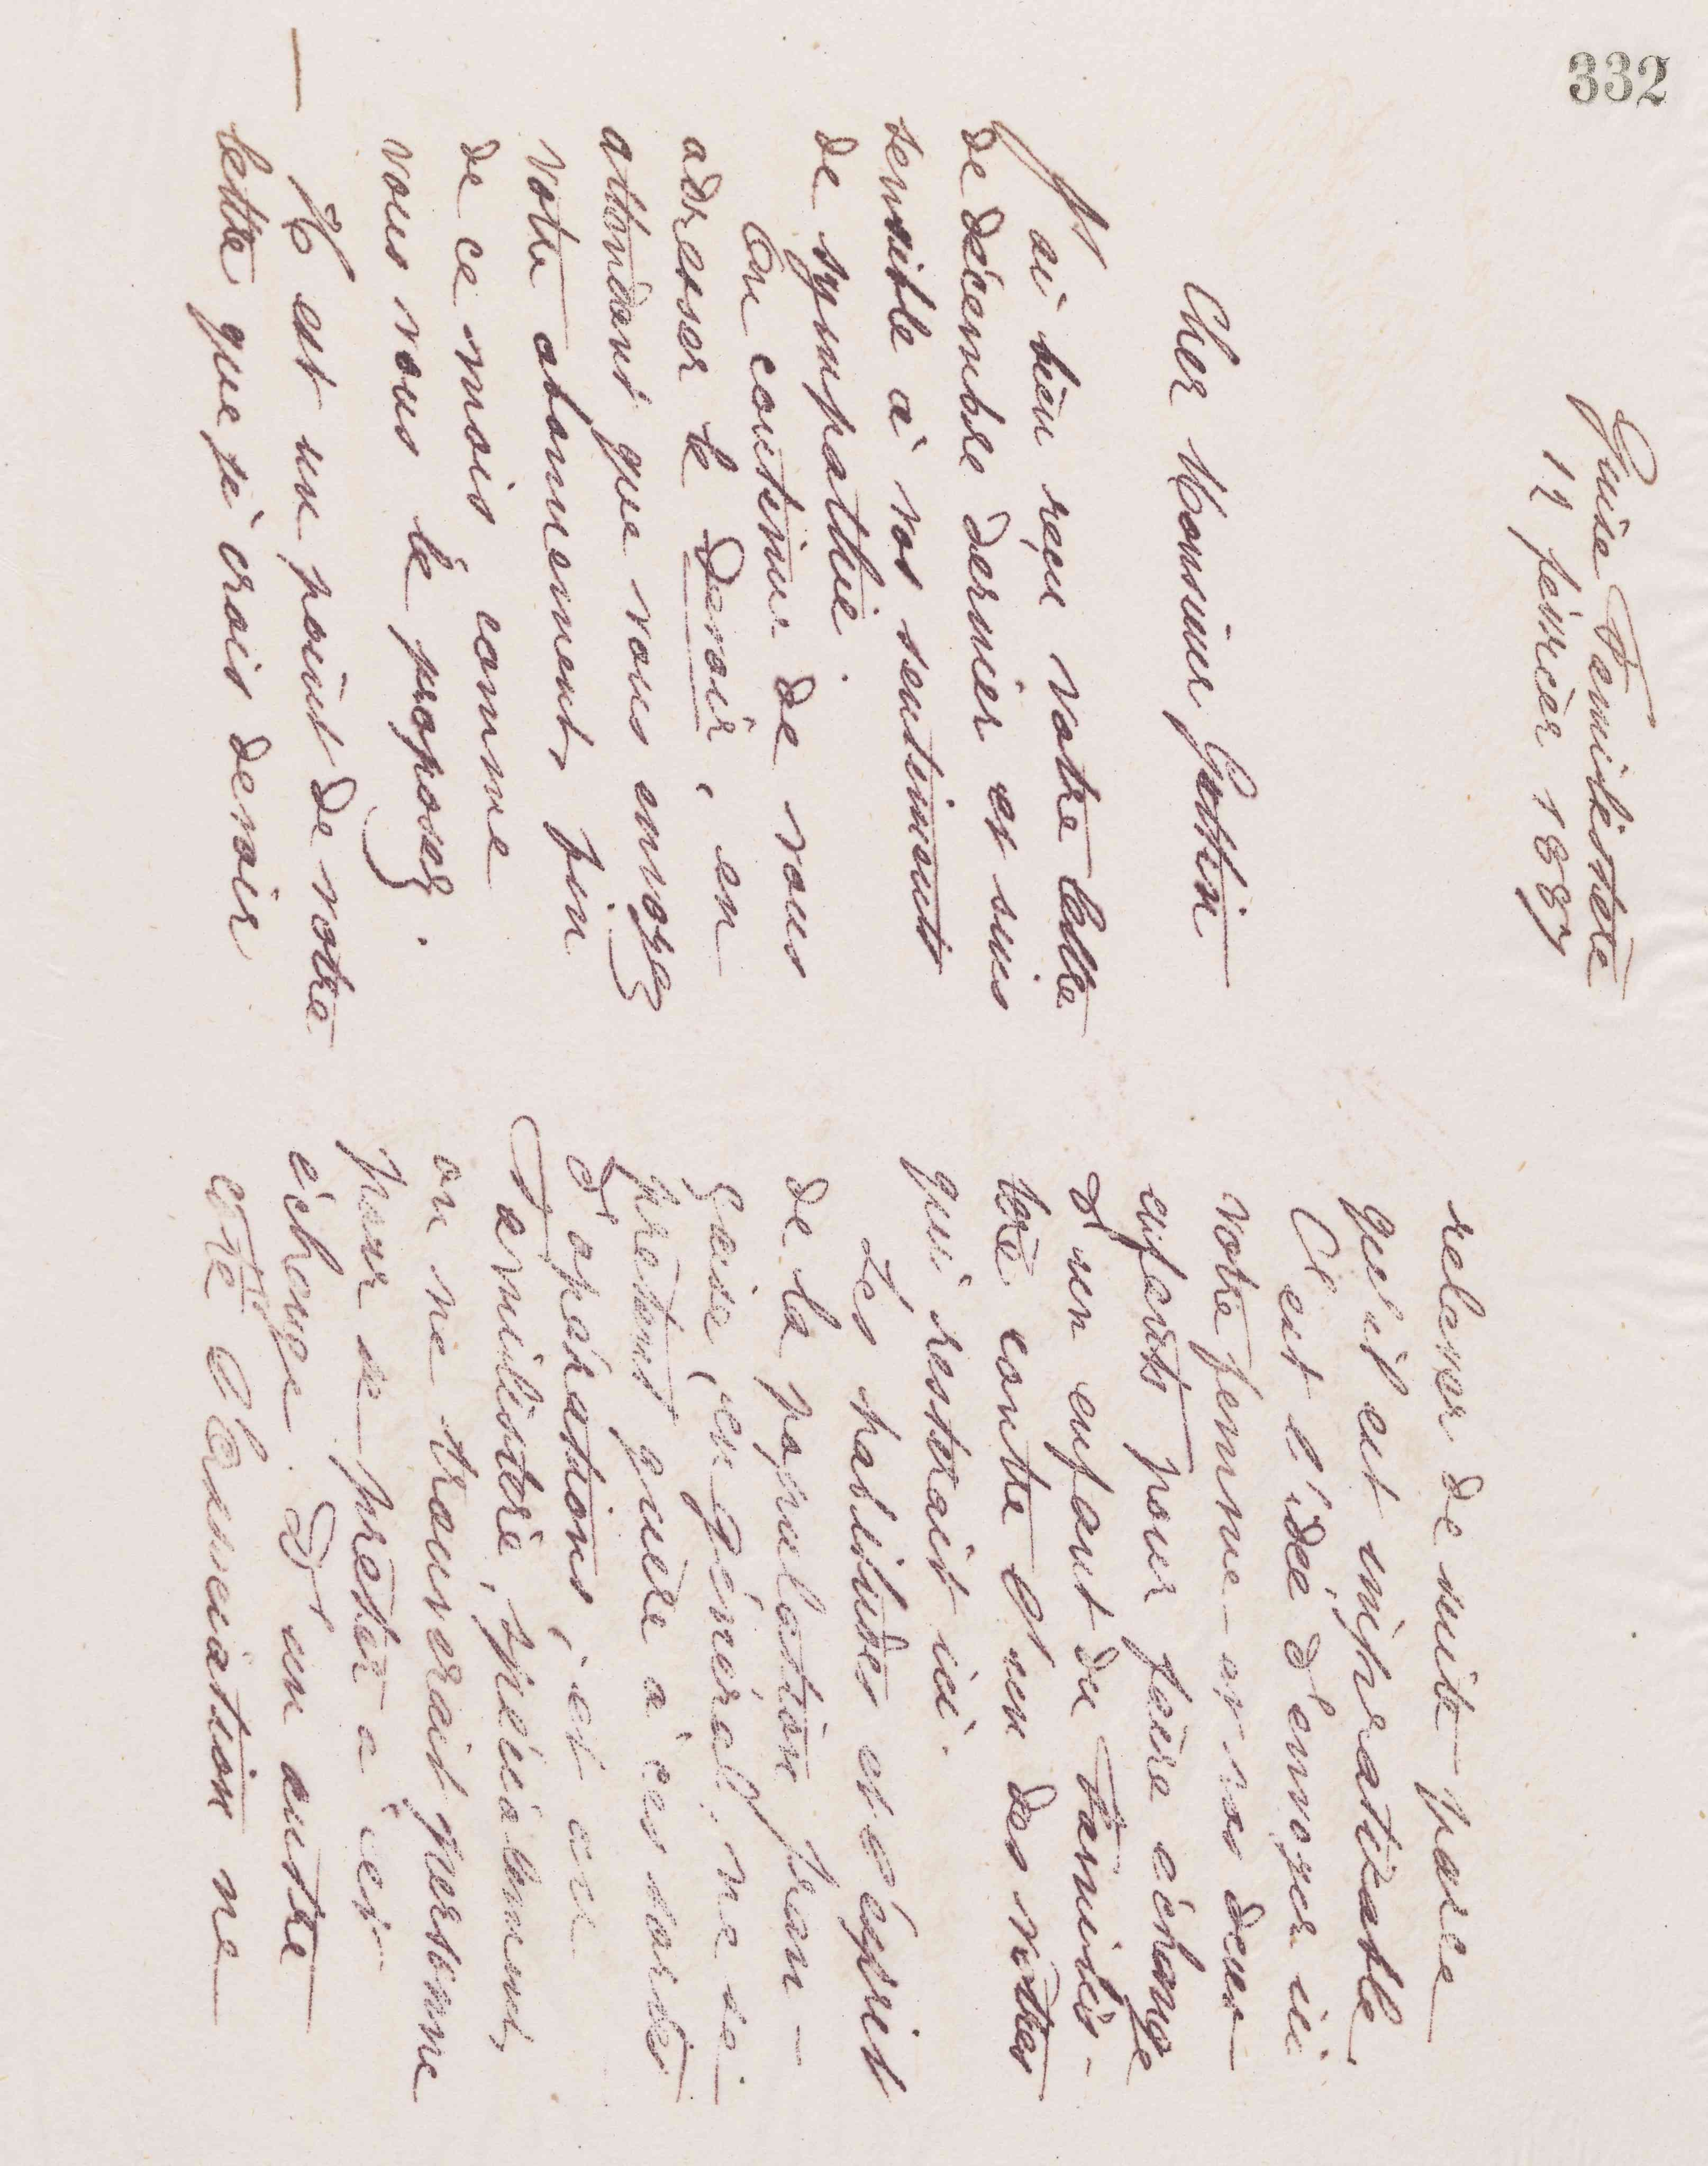 332
Guise Familistère
12 février 1887
Cher Monsieur Gottin
J'ai bien reçu votre lettre
de décembre dernier et suis
sensible à vos sentiments
de sympathie.
On continue de vous
adresser le Devoir, en
attendant que vous envoyez
votre abonnement, fin
de ce mois comme
vous vous le proposez.
Il est un point de votre
lettre que je crois devoir
relever de suite parce
qu'il est impraticable.
C'est l'idée d'envoyer ici
votre femme et vos deux
enfants pour faire échange
d'un enfant du Familis-
tère contre d'un des vôtres
qui resterait ici.
Les habitudes et l'esprit
de la population fran-
çaise, en général, ne se
prêtent guère à ces sortes
d'opérations, et au
Familistère, spécialement,
on ne trouverait personne
pour se prêter à cet
échange. D'un autre
côté l'Association ne